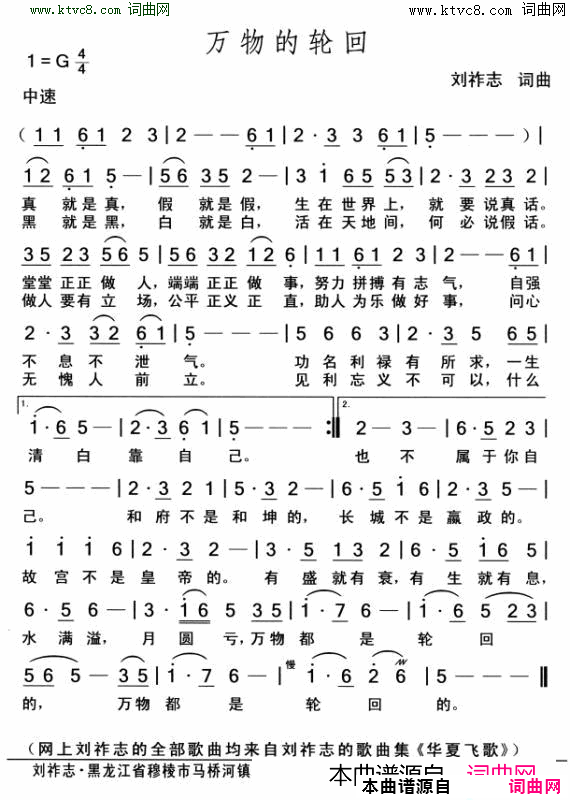 www.ktvc8.com 词曲网 www.ktvc8.com 词曲网
万物的轮回
1=G 4/4
刘祚志 词曲
中速
(1 1 6 1 2 3 | 2 — — 6 1 | 2 · 3 6 1 | 5 — — —) |
1 2 6 1 5 — | 5 6 3 5 2 — | 3 1 6 5 6 5 | 3 · 5 2 3 2 |
真 就是真, 假 就是假, 生在世界上, 就要说真话。
黑 就是黑, 白 就是白, 活在天地间, 何必说假话。
3 5 2 3 5 6 5 | 5 6 3 2 1 2 | 1 1 6 1 2 3 | 2 — — 6 1 |
堂堂正正做人,端端正正做事,努力拼搏有志气, 自强
做人要有立场,公平正义正直,助人为乐做好事, 问心
2 · 3 3 2 6 1 | 5 — — — | 5 6 6 3 | 5 2 3 6 5 |
不息不泄气。 功名利禄有所求,一生
无愧人前立。 见利忘义不可以,什么
1. 2.
1 · 6 5 — | 2 · 3 6 1 | 5 — — — :‖ 2 — 3 — | 6 · 5 2 3 |
清白靠自己。 也不属于你自
5 — — — | 2 · 3 5 3 | 2 · 3 2 — | 6 · 5 6 5 | 3 · 5 2 — |
己。 和府不是和坤的, 长城不是嬴政的。
1 1 1 6 | 2 · 3 2 — | 3 · 5 1 3 | 2 — 6 · 5 | 1 6 5 — |
故宫不是皇帝的。 有盛就有衰,有生就有息,
6 · 6 5 — | 3 · 1 6 5 3 5 | 1 · 7 6 — | 1 · 6 5 2 3 |
水满溢, 月圆亏,万物都是轮回
5 6 5 — 3 5 | 1 · 7 6 — | 慢 1 · 6 2 6 | 5 — — — ‖
的, 万物都是轮回的。
(网上刘祚志的全部歌曲均来自刘祚志的歌曲集《华夏飞歌》)
刘祚志·黑龙江省穆棱市马桥河镇
本曲谱源自 词曲网